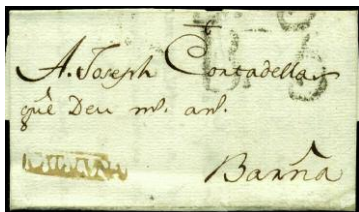 A. Joseph Contadellas
que Deu ms. ans.
Barna